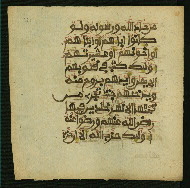 من حاد الله ورسوله ولو
كانوا اباهم او ابناهم
او اخوانهم او عشيرتهم
اولئك كتب في قلوبهم
الايمن وايدهم بروح منه
ويدخلهم جنت تجري من
تحتها الانهر خلدين فيها
رضي الله عنهم ورضوا عنه
اولئك حزب الله الا ان